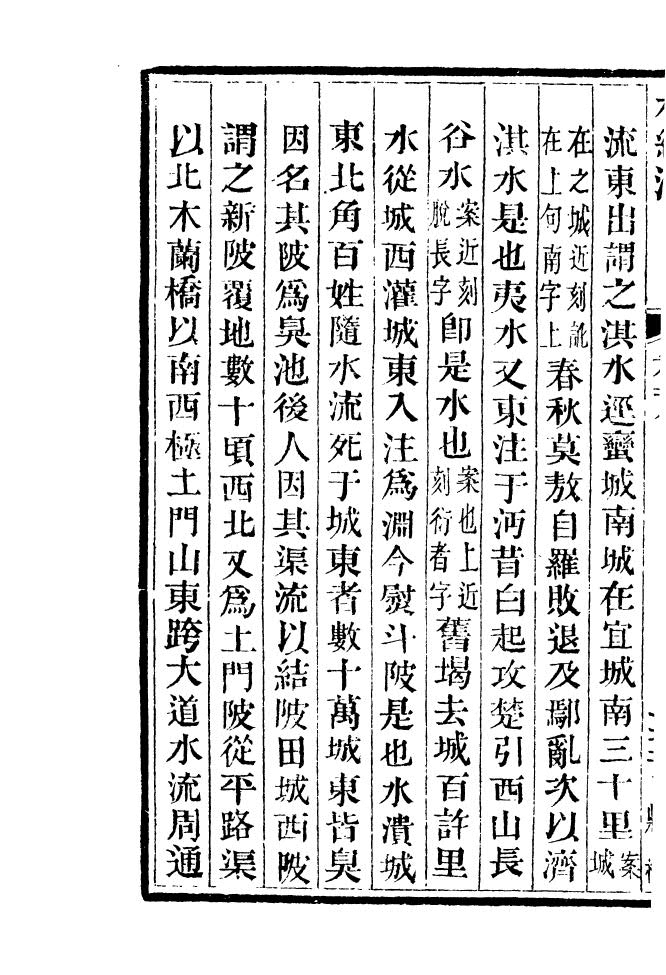 水經注
流東出謂之淇水逕蠻城南城在宜城南三十里案城
在之城近刻訛在上句南字上春秋莫敖自羅敗退及鄢亂次以濟
淇水是也夷水又東注于沔昔白起攻楚引西山長
谷水案近刻脫長字卽是水也案也上近刻衍者字舊堨去城百許里
水從城西灌城東入注爲淵今熨斗陂是也水潰城
東北角百姓隨水流死于城東者數十萬城東皆臭
因名其陂爲臭池後人因其渠流以結陂田城西陂
謂之新陂覆地數十頃西北又爲土門陂從平路渠
以北木蘭橋以南西極土門山東跨大道水流周通